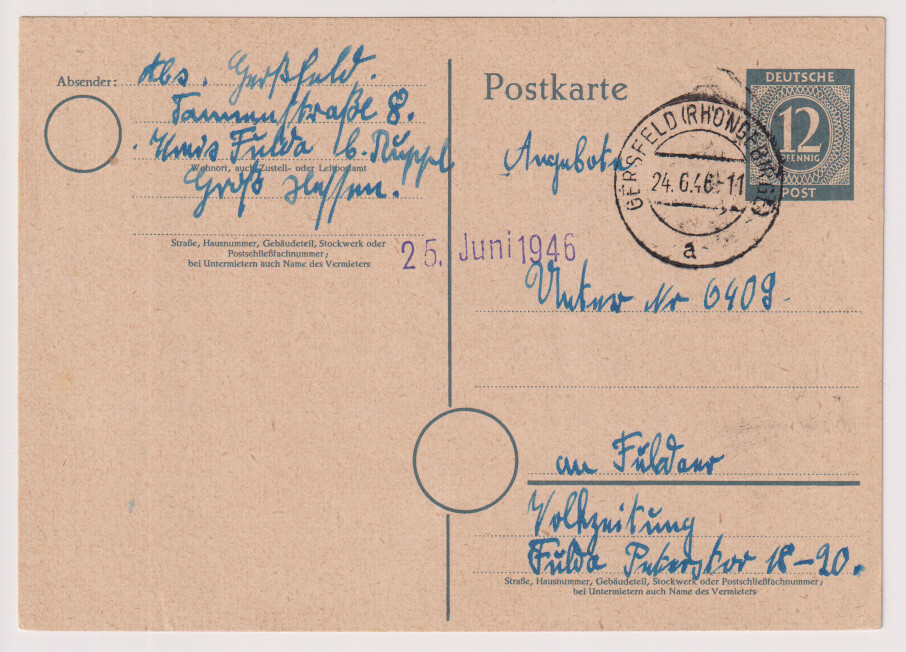 Absender:
Abs. Gersfeld.
Tannenstraße 8.
Kreis Fulda b. Ruppel
Wohnort, auch Zustell- oder Leitpostamt
Groß Hessen.
Straße, Hausnummer, Gebäudeteil, Stockwerk oder
Postschließfachnummer;
bei Untermietern auch Name des Vermieters
25. Juni 1946
Postkarte
DEUTSCHE
12
PFENNIG
POST
GERSFELD (RHÖNGEBIRGE)
24.6.46.-11
a
Angebote
Unter Nr 6409.
an Fuldaer
Volkzeitung
Fulda Peterstor 18-20.
Straße, Hausnummer, Gebäudeteil, Stockwerk oder Postschließfachnummer;
bei Untermietern auch Name des Vermieters